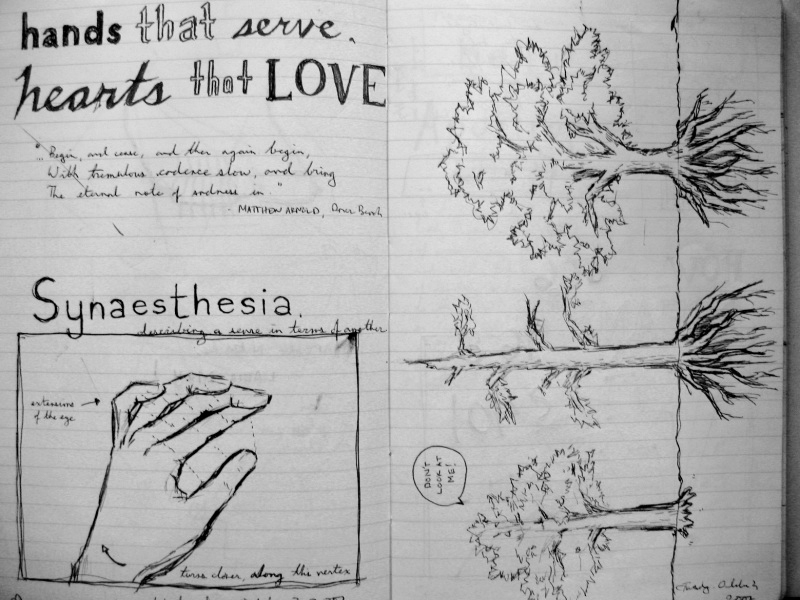 hands that serve.
hearts that LOVE
"... Begin, and cease, and then again begin,
With tremulous cadence slow, and bring
The eternal note of sadness in"
- MATTHEW ARNOLD,
Synaesthesia.
describing a sense in terms of another
extensions
of the eye
turns closer, along the vertex
DON'T
LOOK AT
ME!